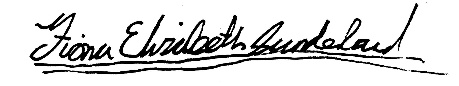 Fiona Elizabeth Sunderland